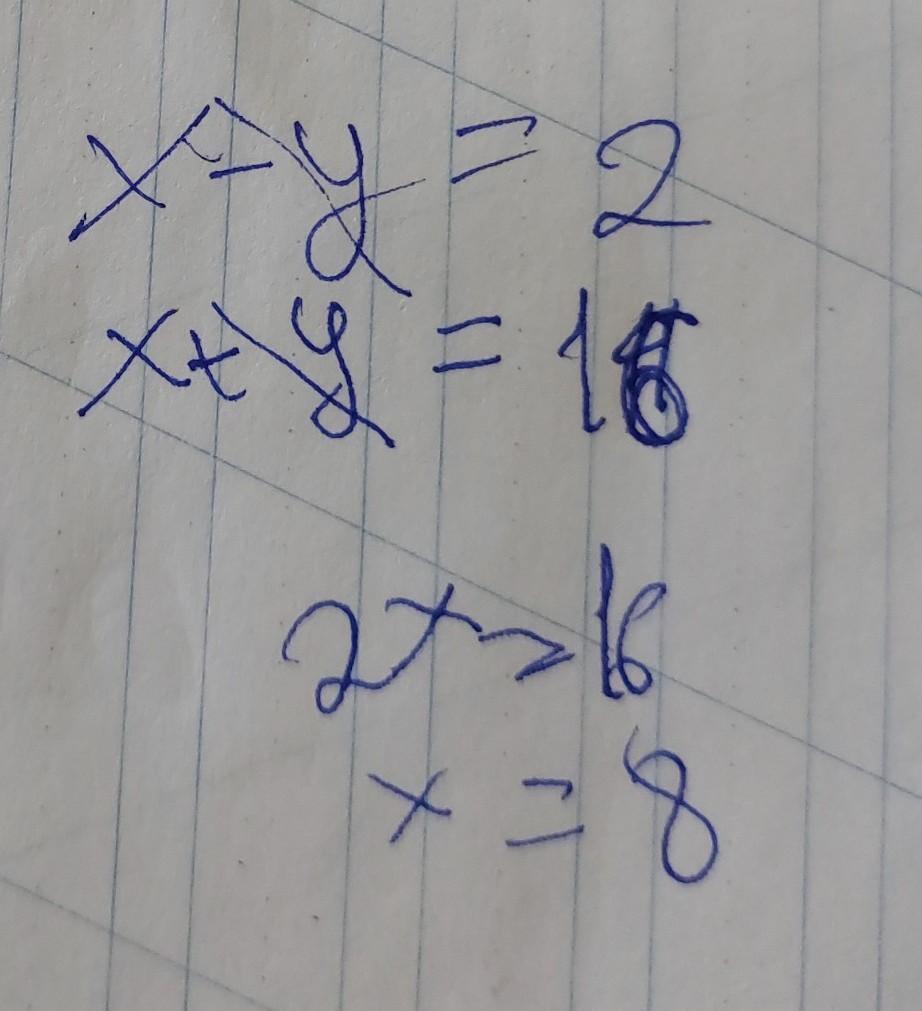 x - y = 2
x + y = 16
2x = 16
x = 8